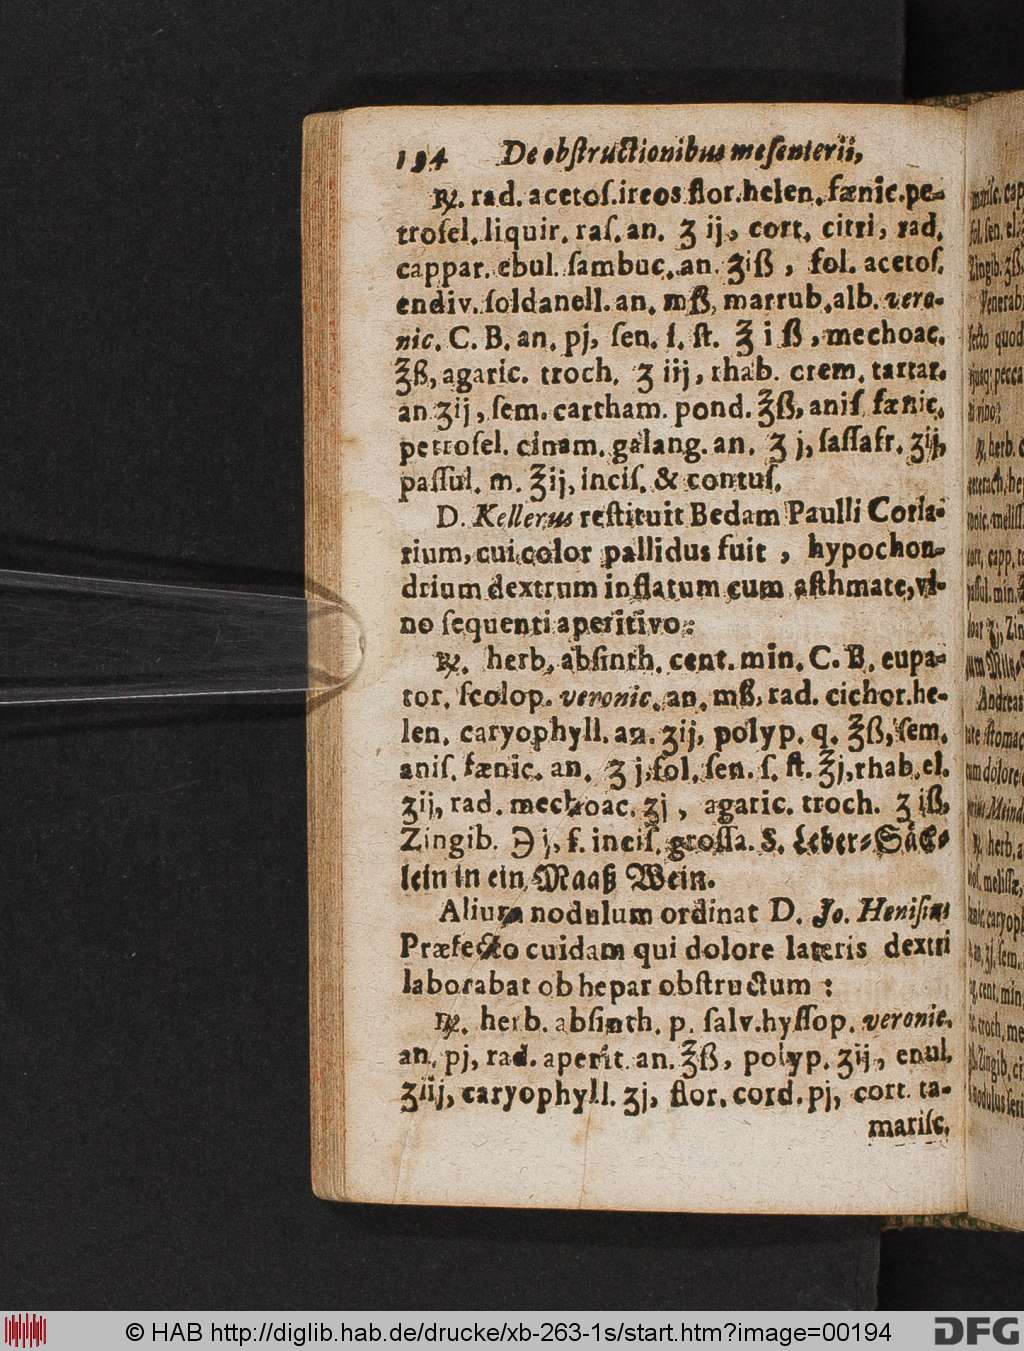 194 De obſtructionibus meſenterii,
℞. rad. acetoſ. ireos flor. helen. fænic. pe-
troſel. liquir. raſ. an. ʒ ij, cort. citri, rad.
cappar. ebul. ſambuc. an. ʒiß, fol. acetoſ.
endiv. ſoldanell. an. mß, marrub. alb. vero-
nic. C. B. an. pj, ſen. ſ. ſt. ℥ i ß, mechoac.
℥ß, agaric. troch. ʒ iij, rhab. crem. tartar.
an ʒij, ſem. cartham. pond. ℥ß, aniſ fænic.
petroſel. cinam. galang. an. ʒ j, ſaſſafr. ʒij,
paſſul. m. ℥ij, inciſ. & contuſ.
D. Kellerus reſtituit Bedam Paulli Corla-
rium, cui color pallidus fuit, hypochon-
drium dextrum inflatum cum aſthmate, vi-
no ſequenti aperitivo:
℞. herb, abſinth. cent. min. C. B. eupa-
tor. ſcolop. veronic. an. mß, rad. cichor. he-
len. caryophyll. an. ʒij, polyp. q. ℥ß, ſem.
aniſ. fænic. an. ʒ j, fol. ſen. ſ. ſt. ℥j, rhab. el.
ʒij, rad. mechoac. ʒj, agaric. troch. ʒ iß,
Zingib. ℈ j, f. inciſ. groſſa. S. Leber-Säck-
lein in ein Maaß Wein.
Alium nodulum ordinat D. Jo. Heniſius
Præfecto cuidam qui dolore lateris dextri
laborabat ob hepar obſtructum:
℞. herb. abſinth. p. ſalv. hyſſop. veronic.
an. pj, rad. aperit. an. ℥ß, polyp. ʒij, enul.
ʒiij, caryophyll. ʒj, flor. cord. pj, cort. ta-
mariſc.
© HAB http://diglib.hab.de/drucke/xb-263-1s/start.htm?image=00194
DFG